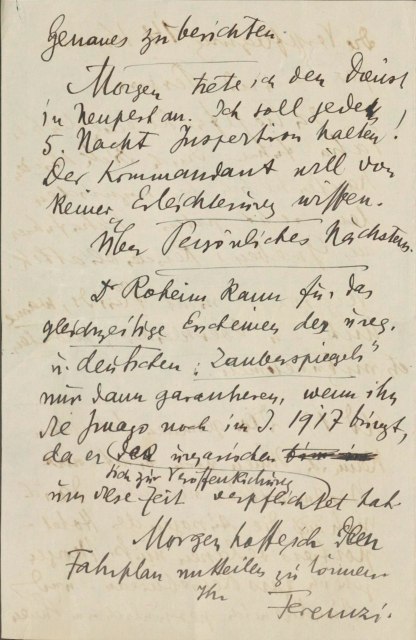 Genaues zu berichten.
Morgen trete ich den Dienst
in Neupest an. Ich soll jede
5. Nacht Inspektion halten!
Der Kommandant will von
keiner Erleichterung wissen.
Über Persönliches Nächstens.
Dr Roheim kann für das
gleichzeitige Erscheinen des ung.
u. deutschen „Zauberspiegels“
nur dann garantieren, wenn ihn
die Imago noch im J. 1917 bringt,
da er ungarischen
sich zur Veröffentlichung
um diese Zeit verpflichtet hat.
Morgen hoffe ich den
Fahrplan mitteilen zu können
Ihr
Ferenczi.